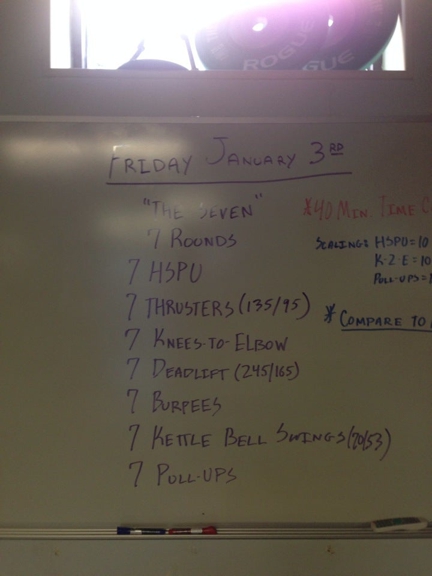 ROGUE
GUE
FRIDAY JANUARY 3RD
"THE SEVEN"
7 ROUNDS
7 HSPU
7 THRUSTERS (135/95)
7 KNEES-TO-ELBOW
7 DEADLIFT (245/165)
7 BURPEES
7 KETTLE BELL SWINGS (70/53)
7 PULL-UPS
*40 MIN. TIME C
SCALING: HSPU=10
K-2-E=10
PULL-UPS=
* COMPARE TO